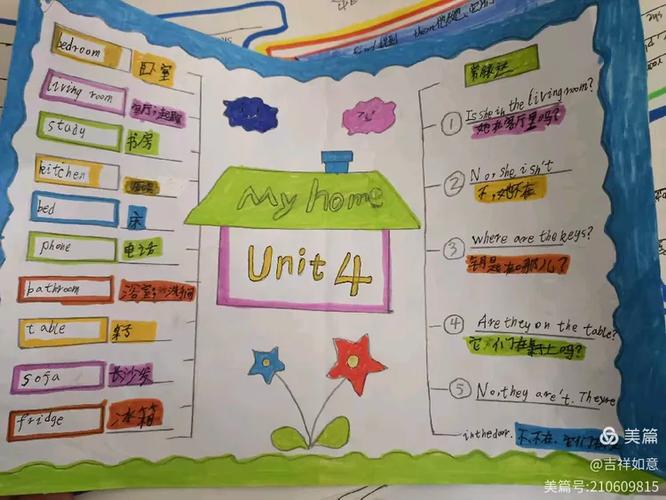 bedroom 卧室
living room 客厅;起居
study 书房
kitchen
bed 床
phone 电话
bathroom 浴室;
table 桌子
sofa 长沙发
fridge 冰箱
My home
Unit 4
常用表达
① Is she in the living room?
她在客厅里吗?
② No, she isn't
不,她不在
③ where are the keys?
钥匙在哪儿?
④ Are they on the table?
它们在桌子上吗?
⑤ No, they are't. They're
in the door. 不,不在,它们在
美篇
@吉祥如意
美篇号:210609815